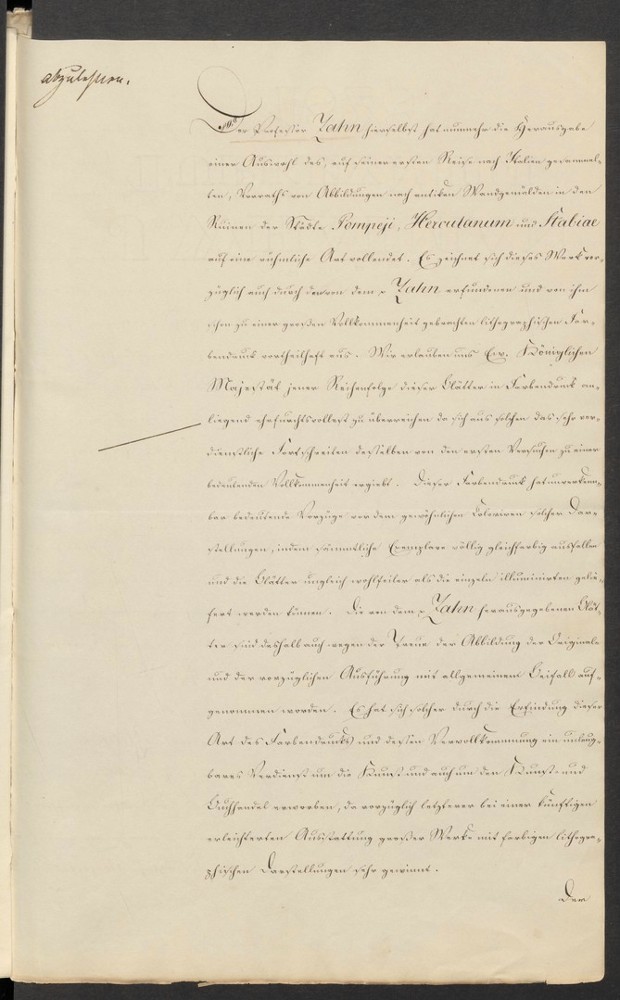 abzulassen.
Der Professor Zahn hierselbst hat nunmehr die Herausgabe
einer Auswahl des, auf seiner ersten Reise nach Italien gesammel-
ten, Vorraths von Abbildungen nach antiken Wandgemälden in den
Ruinen der Städte Pompeji, Herculanum und Stabiae
auf eine rühmliche Art vollendet. Es zeichnet sich dieses Werk vor-
züglich auch durch den von dem Zahn erfundenen und von ihm
schon zu einer großen Vollkommenheit gebrachten lithographischen Far-
bendruck vortheilhaft aus. Wir erlauben uns Ew. Königlichen
Majestät jener Reihenfolge dieser Blätter in Farbendruck an-
liegend ehrfurchtsvollest zu überreichen da sich aus solchen das sehr ver-
dienstliche Fortschreiten desselben von den ersten Versuchen zu einer
bedeutenden Vollkommenheit ergiebt. Dieser Farbendruck hat unverkenn-
bar bedeutende Vorzüge vor dem gewöhnlichen Coloriren solcher Dar-
stellungen, indem sämmtliche Exemplare völlig gleichfarbig ausfallen
und die Blätter ungleich wohlfeiler als die einzeln illuminirten gelie-
fert werden können. Die von dem Zahn herausgegebenen Blät-
ter sind deshalb auch wegen der Treue der Abbildung der Originale
und der vorzüglichen Ausführung mit allgemeinem Beifall auf-
genommen worden. Es hat sich solcher durch die Erfindung dieser
Art des Farbendrucks und dessen Vervollkommnung ein unläug-
bares Verdienst um die Kunst und auch um den Kunst- und
Buchhandel erworben, da vorzüglich letzterer bei einer künftigen
erleichterten Ausstattung großer Werke mit farbigen lithogra-
phischen Darstellungen sehr gewinnt.
Der